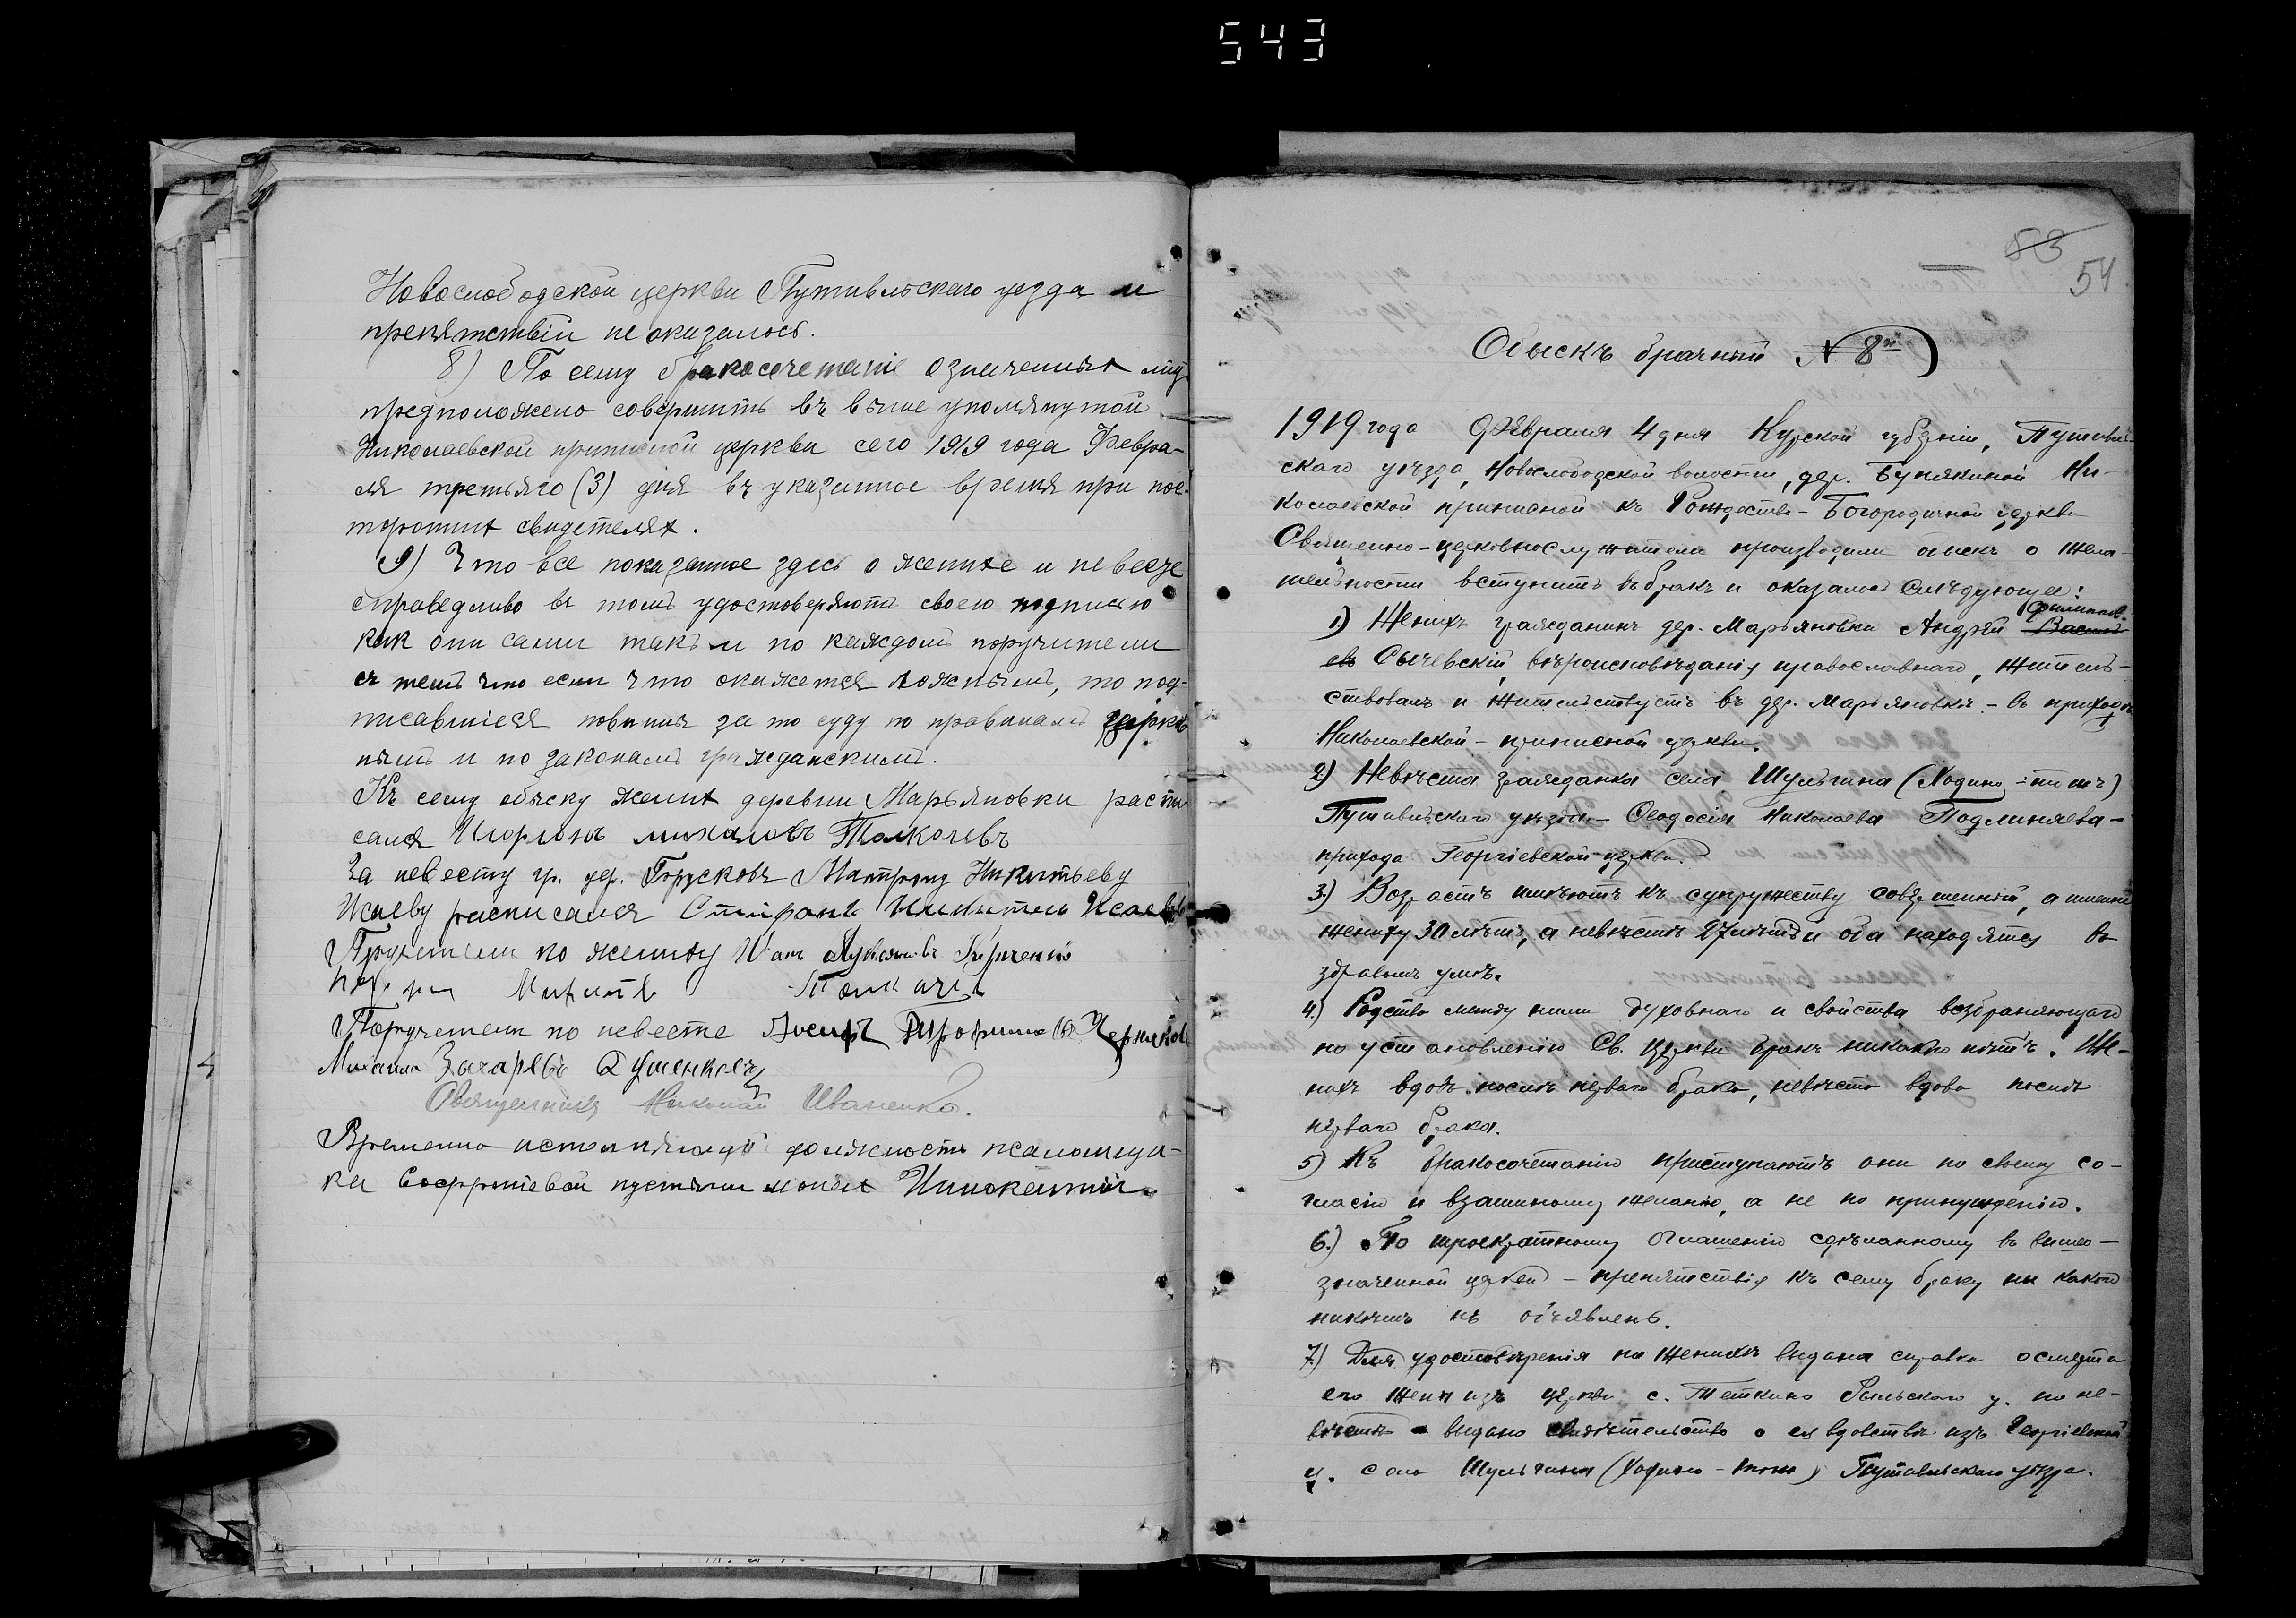 543
Новослободской церкви Путивльскаго уезда и
препятствий не оказалось.
8) По сему бракосочетание означенных лиц
предположено совершить въ выше упомянутой
Николаевской приписной церкви сего 1919 года Февра-
ля третьяго (3) дня въ указанное время при пос-
торонних свидетелях.
9) Что все показанное здесь о женихе и невесте
справедливо въ томъ удостоверяютъ своею подписью
как они сами такъ и по каждомъ поручители
съ темъ что если что окажется ложнымъ, то под-
писавшіеся повинны за то суду по правиламъ церков
нымъ и по законамъ гражданскимъ.
Къ сему обыску жених деревни Марьяновки распи
сался Толкачевъ
За невесту гр. дер. Матрону Никитьеву
Исаеву расписался Никитин Исаевъ
по жениху Иван
Толкачъ
по невесте Чернековъ
Михаилъ Захаревъ
Священникъ Николай Иваненко.
Временно исполняющій должность псаломщи-
ка Софроніевой пустыни монах Иннокентій.
83
54
Обыскъ брачный № 8й
1919 года Февраля 4 дня Курской губерніи, Путивль-
скаго уѣзда, Новослободской волости, дер. Бунякиной Ни-
колаевской приписной къ Рождество-Богородичной церкви
Священно-церковнослужители производили обыскъ о жела-
тельности вступить въ бракъ и оказалось слѣдующее:
Филиппов.
1) Женихъ гражданинъ дер. Марьяновки Андрей Васил
евъ Сычевскій, вѣроисповѣданія православнаго, житель-
ствовалъ и жительствуетъ въ дер. Марьяновкѣ - въ приходѣ
Николаевской - приписной церкви.
2) Невѣста гражданка села Шульгина (Ходино - тожъ)
Путивльскаго уѣзда - Ѳеодосія Николаева Подлиняева -
прихода Георгіевской церкви.
3) Возрастъ имѣютъ къ супружеству совершенный, а именно
жениху 30 лѣтъ, а невѣстѣ 27 лѣтъ и оба находятся въ
здравомъ умѣ.
4) Родства между ними духовнаго и свойства возбраняющаго
по установленію Св. Церкви бракъ никакого нѣтъ. Же-
нихъ вдовъ послѣ перваго брака, невѣста вдова послѣ
перваго брака.
5) Къ бракосочетанію приступаютъ они по своему со-
гласію и взаимному желанію, а не по принужденію.
6) По троекратному оглашенію сдѣланному въ вышео-
значенной церкви - препятствія къ сему браку ни какого
никѣмъ не объявлено.
7) Для удостовѣренія на жениха выдана справка о смерти
его жены изъ церкви с. Теткино Рыльскаго у. на не-
вѣсту выдано свидѣтельство о ея вдовствѣ изъ Георгіевской
ц. села Шульгина (Ходино - тожъ) Путивльскаго уѣзда.